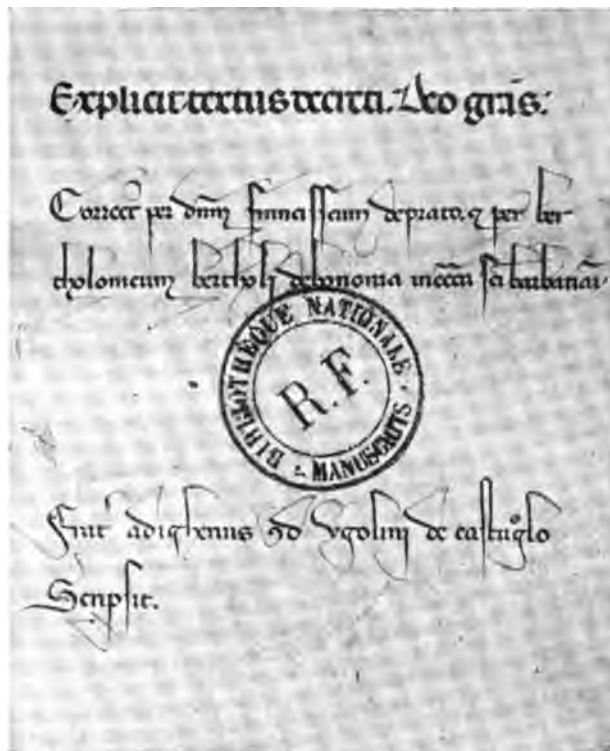 Explicit textus decreti. Deo grās:
Correct per dnm̄ francisscum deprato. ⁊ per ber-
tholomeum bertholi debononia in eccā scī barbatiāi·
BIBLIOTHEQUE NATIONALE · MANUSCRITS
R.F.
adighenus ugolini de
Scripsit.